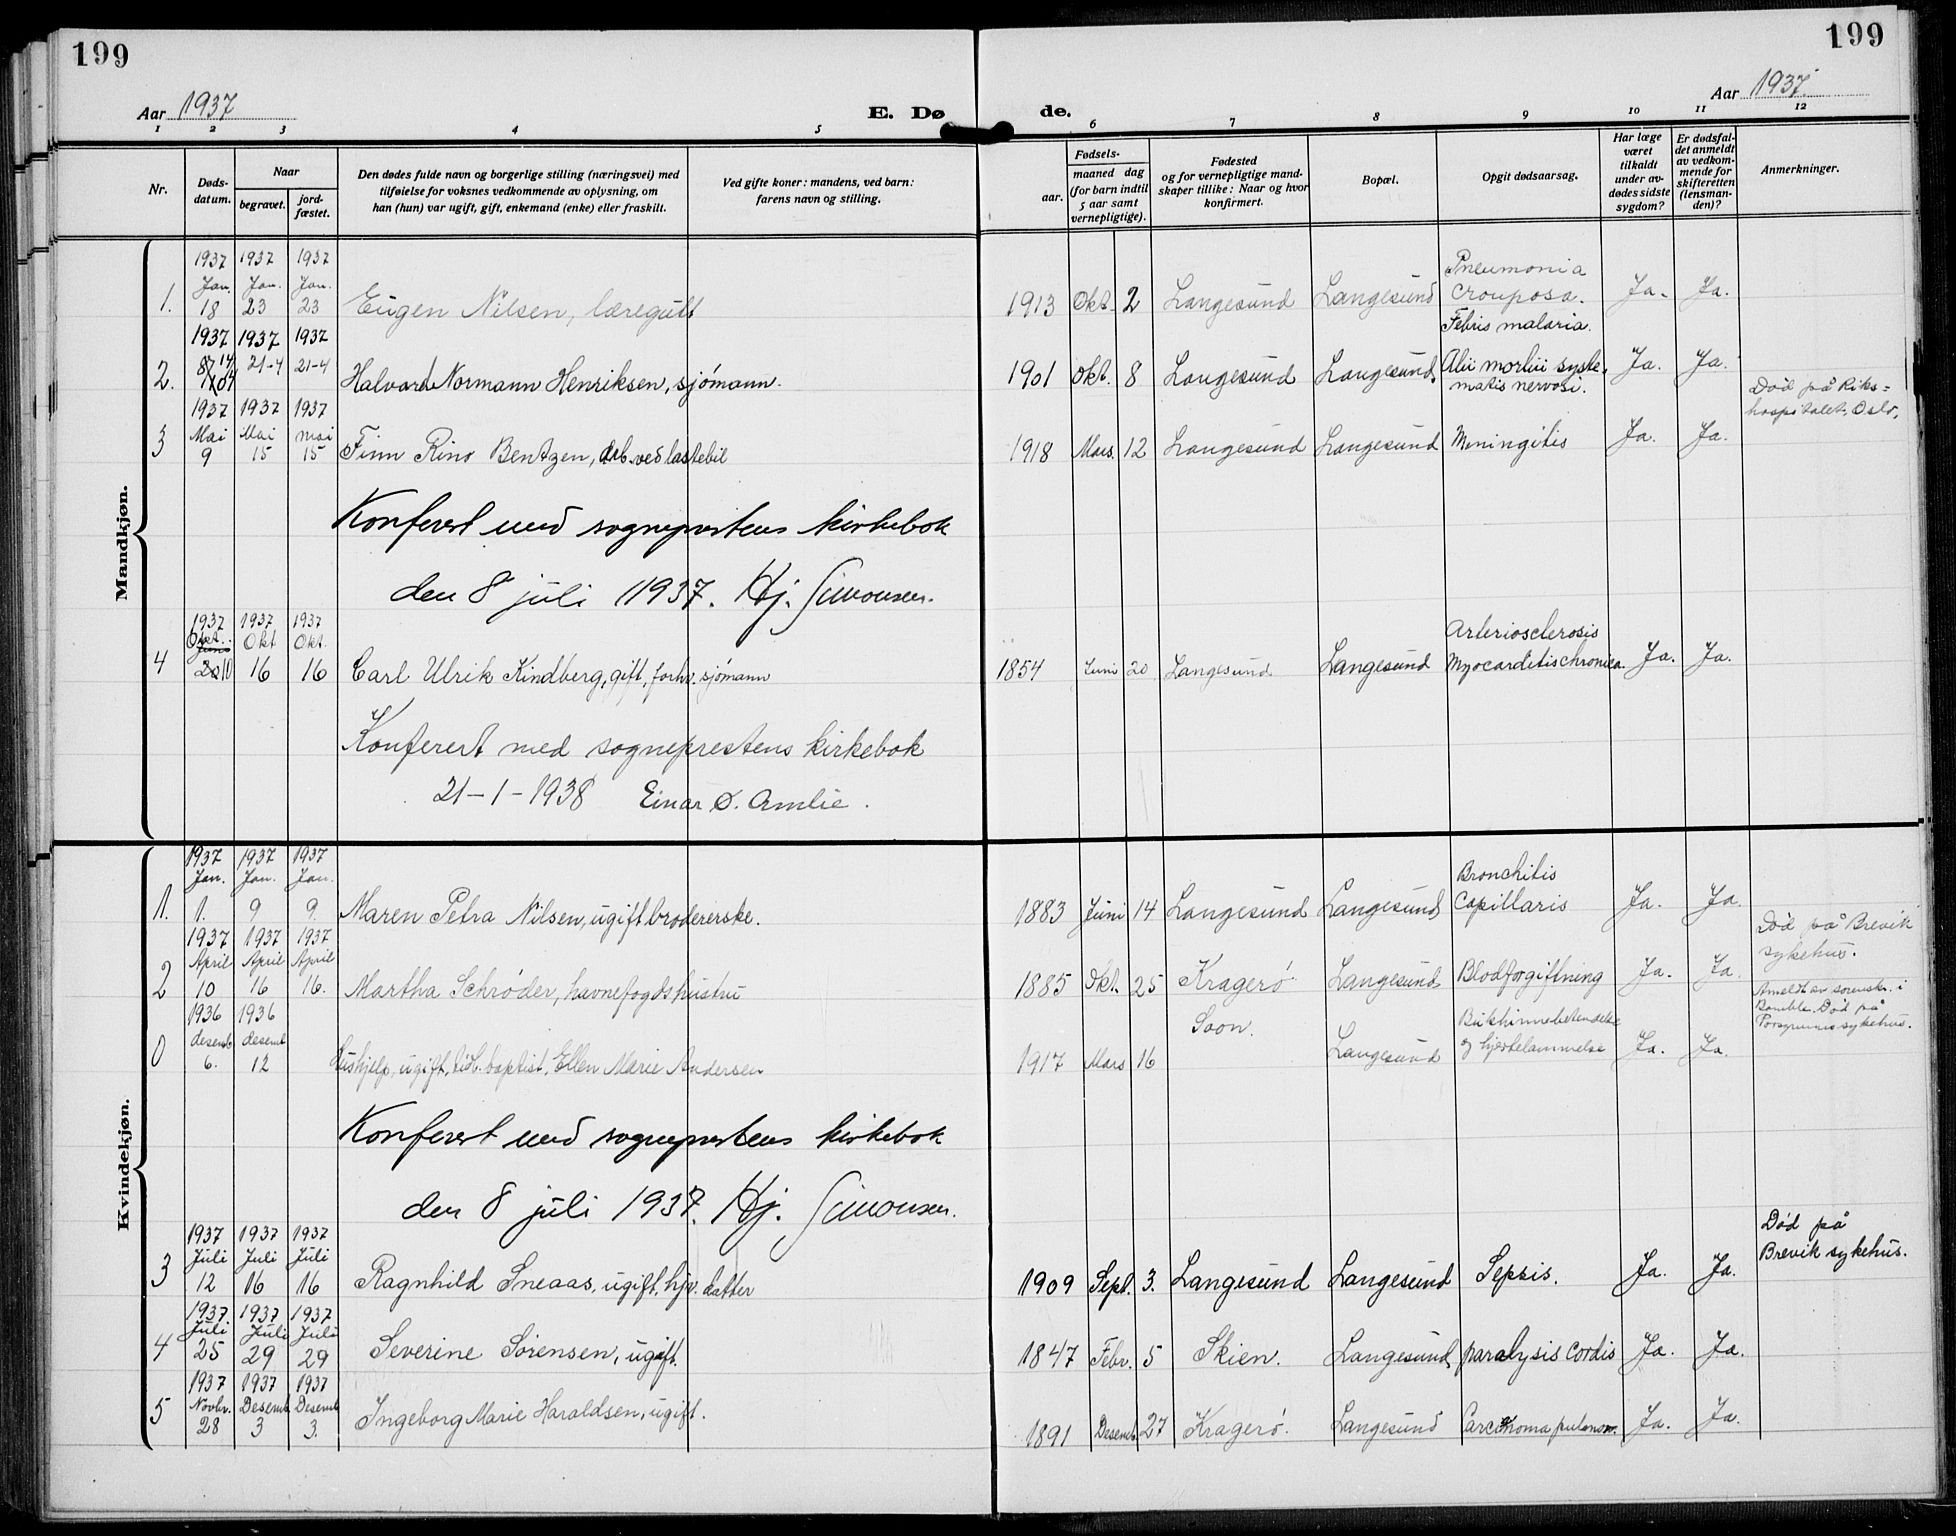 199
199
Aar 1937
E. Dø
de.
Aar 1937.
1 2 3 4 5
6 7 8 9 10 11 12
Nr.
Døds-
datum.
Naar
begravet.
jord-
fæstet.
Den dødes fulde navn og borgerlige stilling (næringsvei) med
tilføielse for voksnes vedkommende av oplysning, om
han (hun) var ugift, gift, enkemand (enke) eller fraskilt.
Ved gifte koner: mandens, ved barn:
farens navn og stilling.
Fødsels-
aar.
maaned dag
(for barn indtil
5 aar samt
vernepligtige).
Fødested
og for vernepligtige mand-
skaper tillike: Naar og hvor
konfirmert.
Bopæl.
Opgit dødsaarsag.
Har læge
været
tilkaldt
under av-
dødes sidste
sygdom?
Er dødsfal-
det anmeldt
av vedkom-
mende for
skifteretten
(lensman-
den)?
Anmerkninger.
Mandkjøn.
1937 1937 1937
Jan. Jan. Jan.
Pneumonia
1. 18 23 23 Eugen Nilsen, læregutt 1913 Okt. 2 Langesund Langesund crouposa. Ja. Ja.
Febris malaria.
1937 1937 1937
14/4 21-4 21-4
2. Halvard Normann Henriksen, sjømann. 1901 Okt. 8 Langesund Langesund. Alii morbii syste-
matis nervosi. Ja. Ja.
Død på Riks-
hospitalet, Oslo.
1937 1937 1937
Mai Mai mai
3 9 15 15 Finn Rino Bentzen, arb. ved lastebil 1918 Mars. 12 Langesund Langesund Meningitis Ja. Ja.
Konferert med sogneprestens kirkebok
den 8 juli 1937. Hj. Simonsen.
1937 1937 1937
Okt. Okt Okt.
Arteriosclerosis
4 10 16 16 Carl Ulrik Kindberg, gift, forhv. sjømann 1854 Juni 20 Langesund Langesund Myocarditis chronica. Ja. Ja.
Konferert med sogneprestens kirkebok
21-1-1938 Einar Ø. Amlie.
Kvindekjøn.
1937 1937 1937
Jan. Jan. Jan.
Bronchitis
1. 1. 9 9. Maren Petra Nilsen, ugift brodererske. 1883 Juni 14 Langesund Langesund Capillaris Ja. Ja.
1937 1937 1937
April April April
Død på Brevik
sykehus.
2 10 16 16. Martha Schrøder, havnefogds hustru 1885 Okt. 25 Kragerø Langesund Blodforgiftning Ja. Ja.
1936 1936
desemb desemb
Soon.
Bukhinnebetendelse
og hjertelammelse
Anmeldt av sorenskr. i
Bamble. Død på
Porsgrunns sykehus.
0 6. 12 Hushjelp, ugift, tidl. baptist, Ellen Marie Andersen 1917 Mars 16 Langesund Ja. Ja.
Konferert med sogneprestens kirkebok
den 8 juli 1937. Hj. Simonsen.
1937 1937 1937
Juli Juli Juli
Død på
Brevik sykehus.
3 12 16 16 Ragnhild Sneaas, ugift, hjv. datter 1909 Sept. 3. Langesund Langesund Sepsis. Ja. Ja.
1937. 1937 1937
Juli Juli Juli
4 25 29 29 Severine Sørensen, ugift. 1847 Febr. 5 Skien. Langesund paralysis cordis Ja. Ja.
1937 1937 1937
Novbr. Desemb. Desemb
5 28 3 3. Ingeborg Marie Haraldsen, ugift. 1891 Desemb. 27 Kragerø. Langesund Carcinoma pulmon. Ja. Ja.